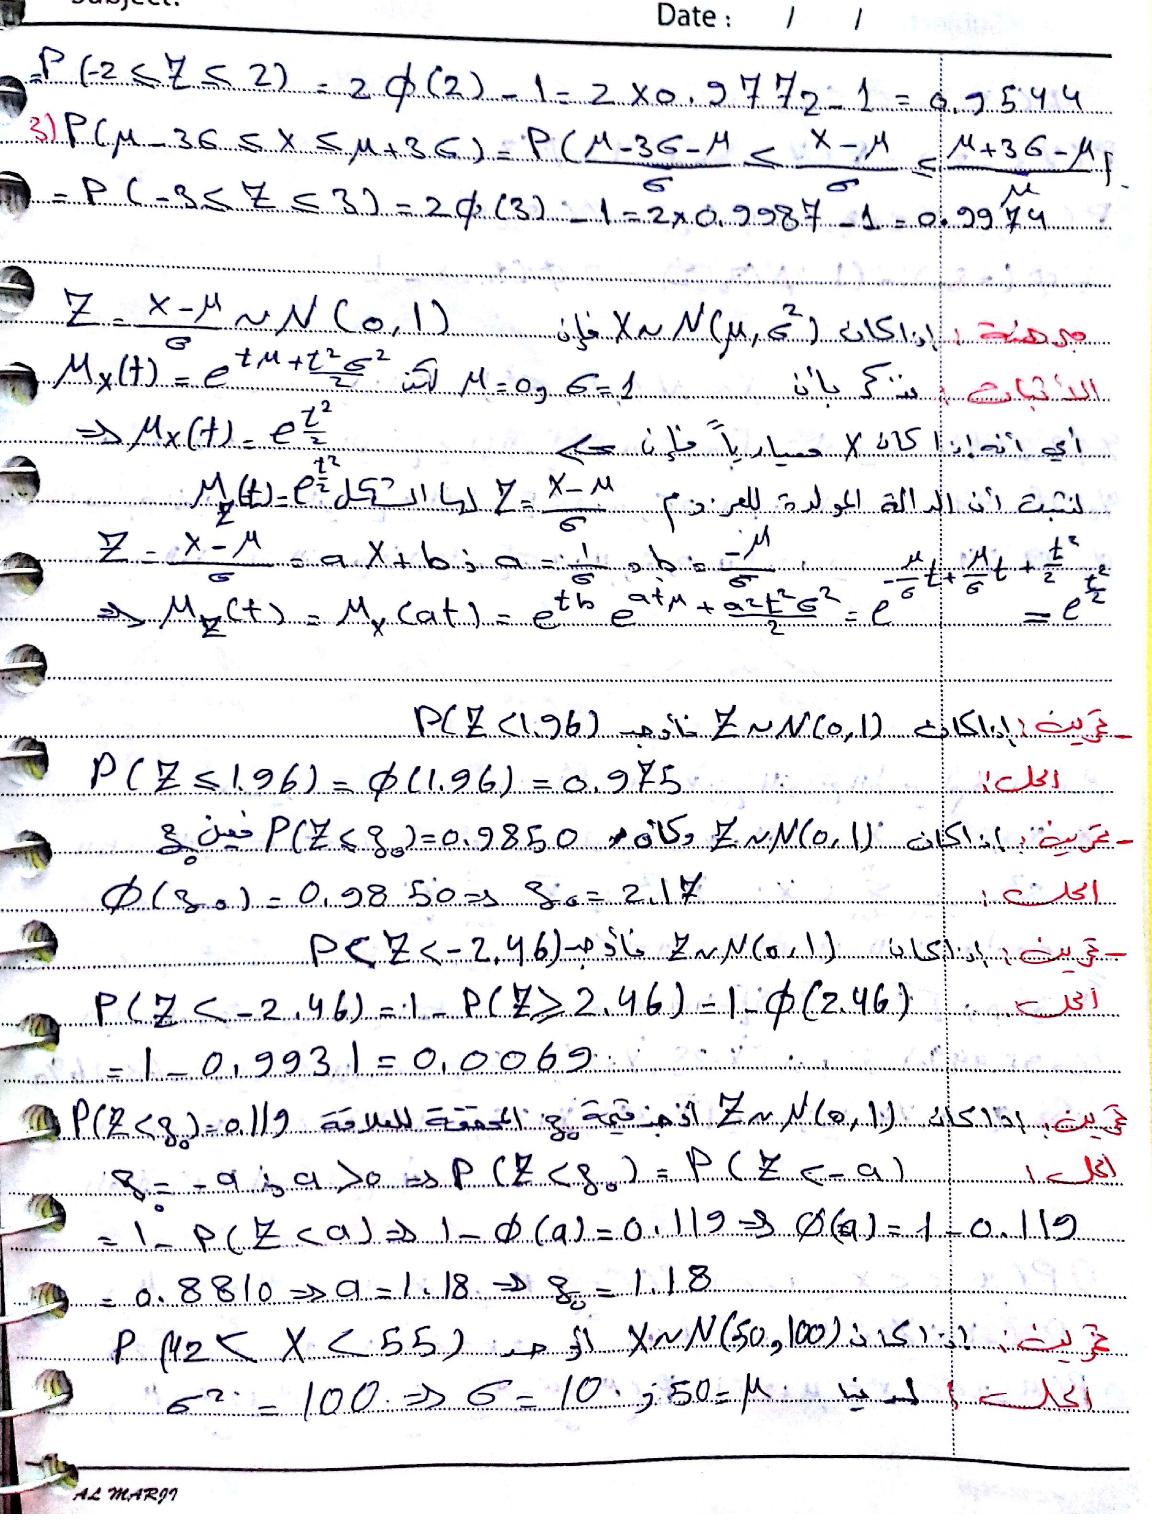 Subject:
Date : / /
=P(-2 ≤ Z ≤ 2) = 2ϕ(2) - 1 = 2 x 0.9772 - 1 = 0.9544
3) P(μ-3σ ≤ X ≤ μ+3σ) = P(μ-3σ-μ/σ ≤ X-μ/σ ≤ μ+3σ-μ/μ)
= P(-3 ≤ Z ≤ 3) = 2ϕ(3) - 1 = 2x0.9987 - 1 = 0.9974
مبرهنة : إذا كانت X ~ N(μ, σ²) فإن Z = X-μ/σ ~ N(0,1)
الاثبات : نتذكر بأن μ=0 و σ=1 لكن Mx(t) = e^(tμ + t²σ²/2)
أي أنه إذا كان X معيارياً فإن => Mx(t) = e^(t²/2)
لنثبت أن الدالة المولدة للعزوم Z = X-μ/σ لها الشكل M_Z(t) = e^(t²/2)
Z = X-μ/σ = aX + b ; a = 1/σ , b = -μ/σ
=> M_Z(t) = M_x(at) = e^(tb) e^(atμ + a²t²σ²/2) = e^(-μ/σ t + μ/σ t + t²/2) = e^(t²/2)
- تمرين : إذا كانت Z ~ N(0,1) فأوجد P(Z < 1.96)
الحل : P(Z ≤ 1.96) = ϕ(1.96) = 0.975
- تمرين : إذا كان Z ~ N(0,1) وكان P(Z ≤ z₀) = 0.9850 فعين z₀
الحل : ϕ(z₀) = 0.9850 => z₀ = 2.17
- تمرين : إذا كان Z ~ N(0,1) فأوجد P(Z < -2.46)
الحل : P(Z < -2.46) = 1 - P(Z ≥ 2.46) = 1 - ϕ(2.46)
= 1 - 0.9931 = 0.0069
تمرين : إذا كان Z ~ N(0,1) أوجد قيمة z₀ المحققة للعلاقة P(Z < z₀) = 0.119
الحل : z₀ = -a ; a > 0 => P(Z < z₀) = P(Z < -a)
= 1 - P(Z < a) => 1 - ϕ(a) = 0.119 => ϕ(a) = 1 - 0.119
= 0.8810 => a = 1.18 => z₀ = 1.18
تمرين : إذا كان X ~ N(50, 100) أوجد P(42 < X < 55)
الحل : لدينا σ² = 100 => σ = 10 ; 50 = μ
AL MARJI